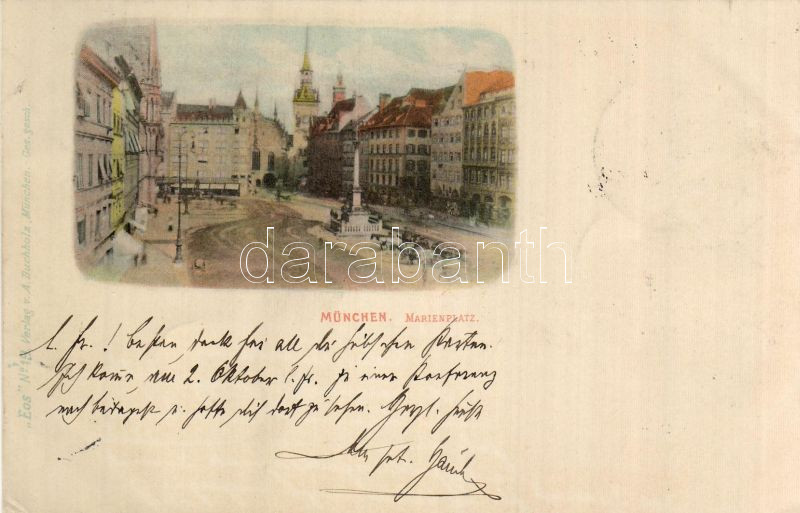 "Eos" No 12 Verlag v. A. Buchholz, München. Ges. gesch.
darabanth
MÜNCHEN. MARIENPLATZ.
l. Fr.! Besten Dank für all die hübschen Karten.
Ich komme am 2. Oktober l. Js. zu einer Konferenz
nach u. hoffe dich dort zu sehen.